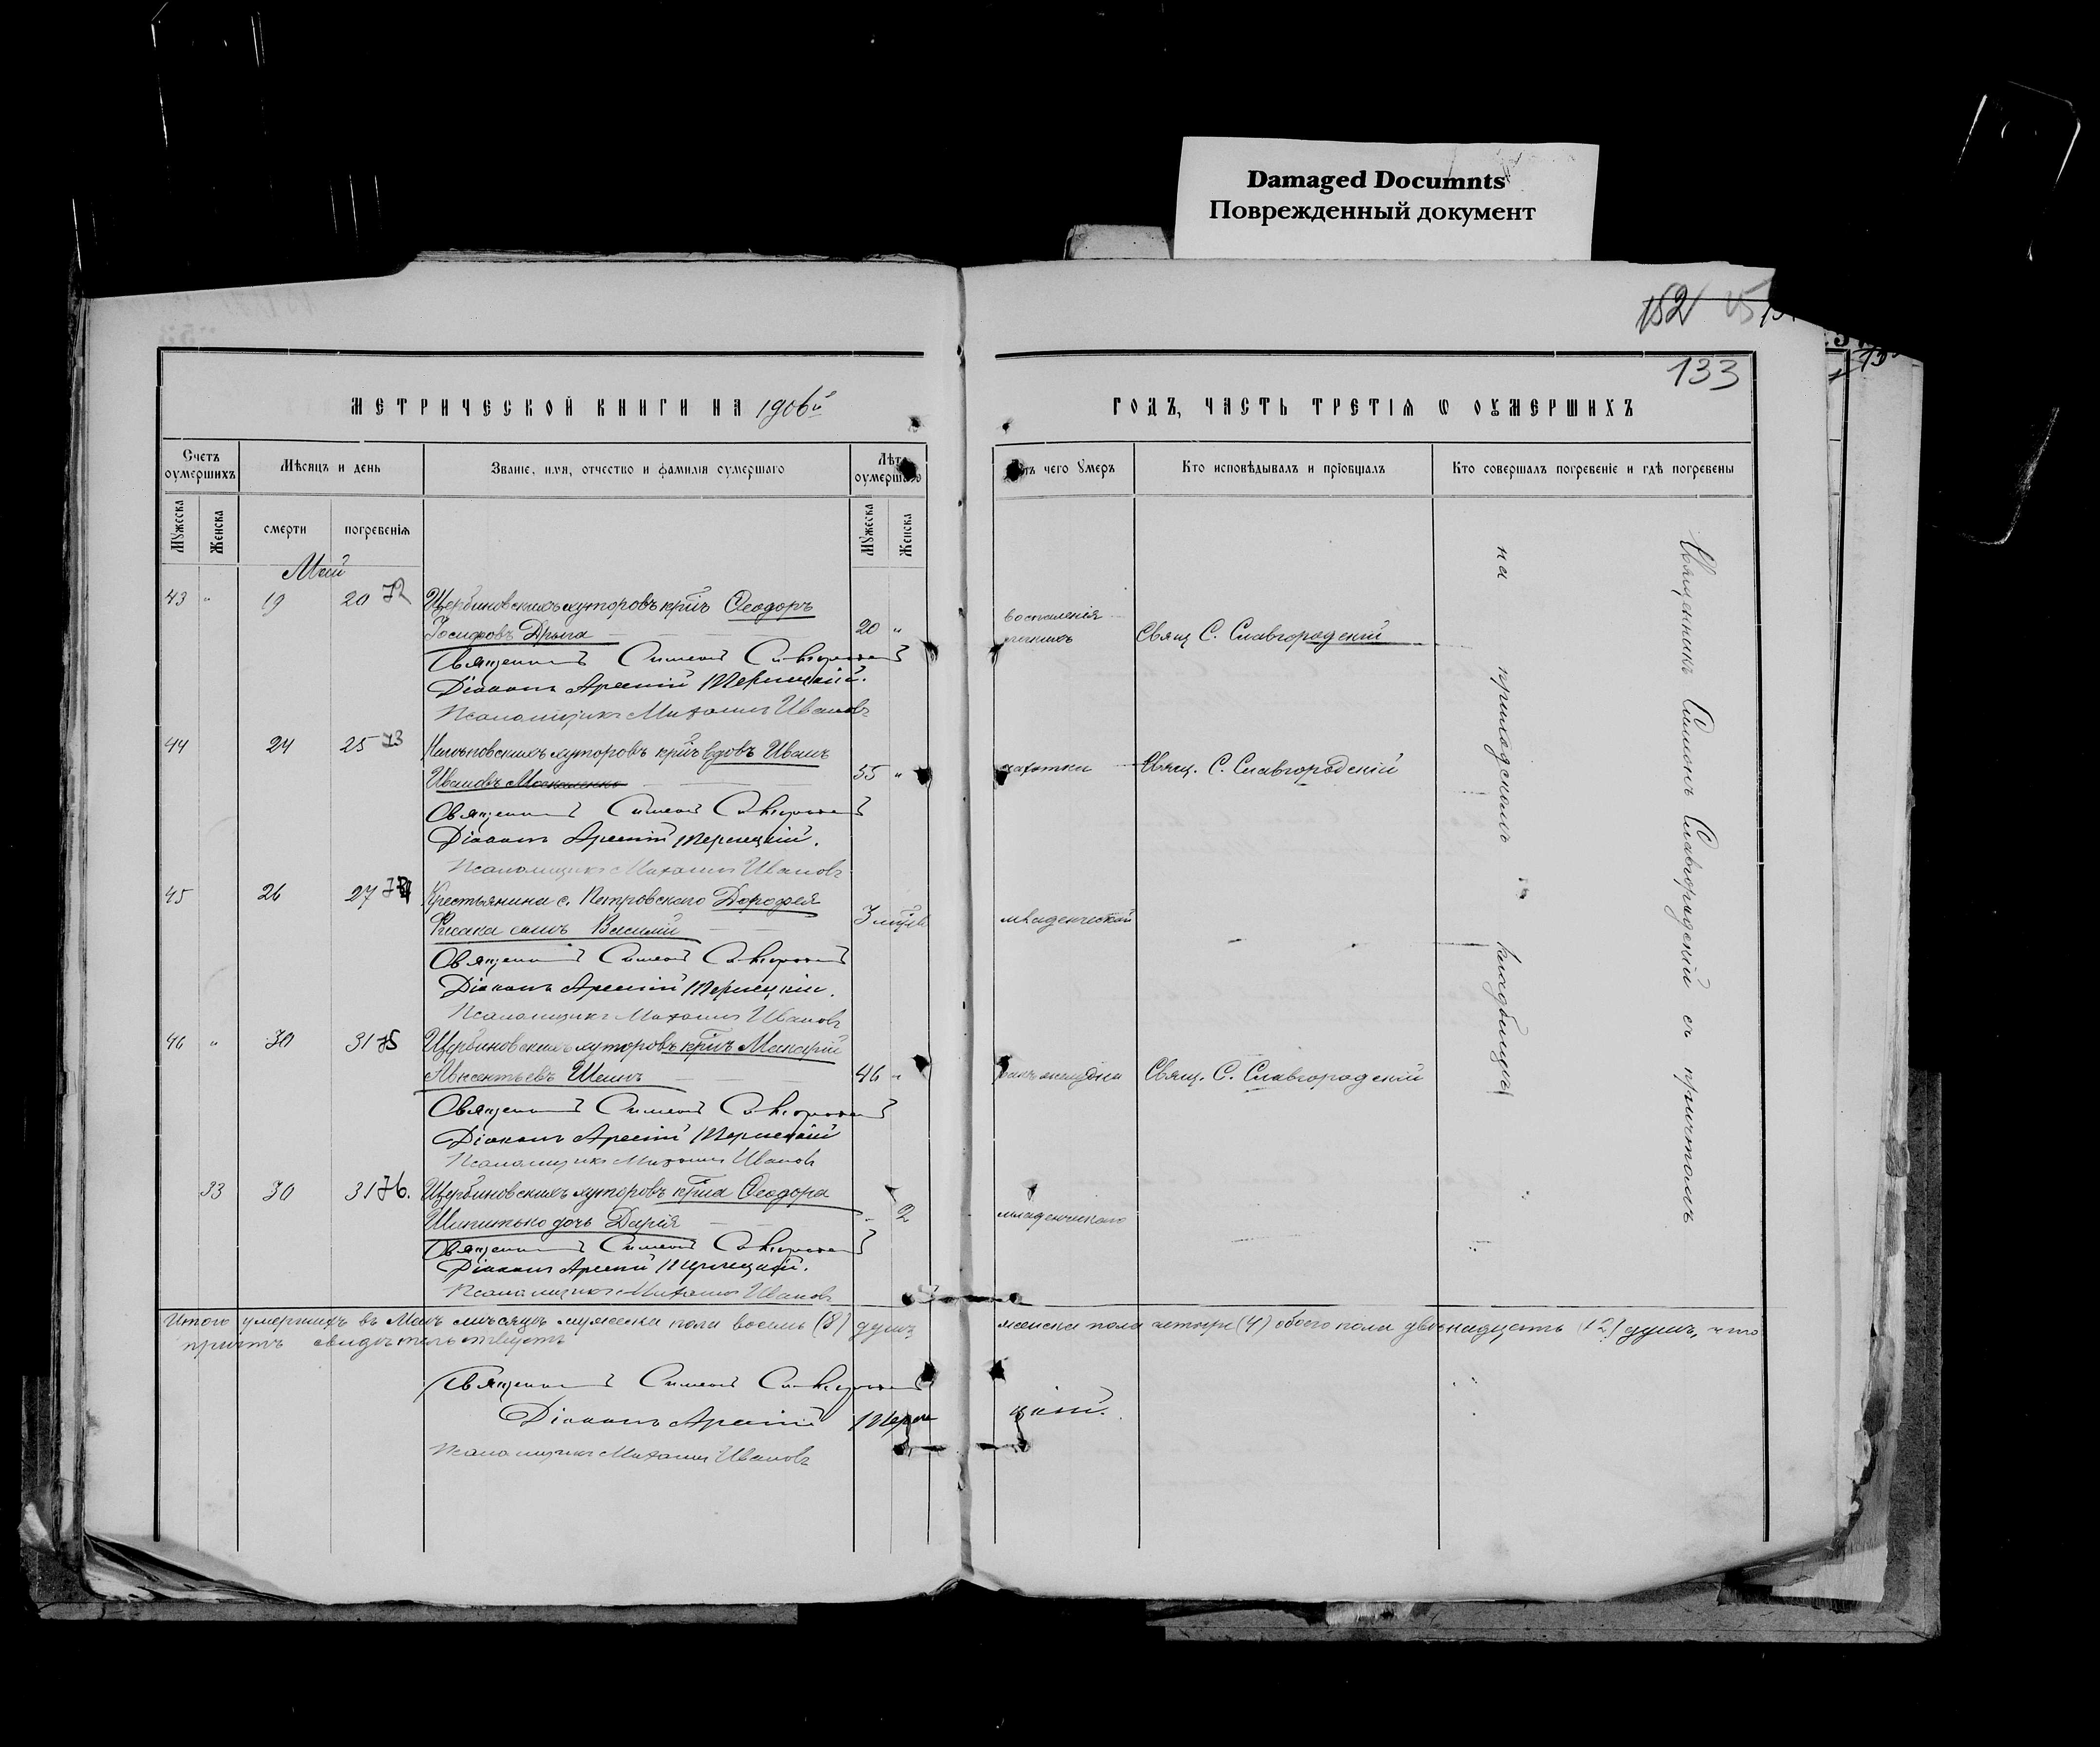 Damaged Documnts
Поврежденный документ
152
133
МЕТРИЧЕСКОЙ КНИГИ НА 1906й
ГОДЪ, ЧАСТЬ ТРЕТІЯ Ѡ ОУМЕРШИХЪ
Счетъ оумершихъ
Мѣсяцъ и день
Званіе, имя, отчество и фамилія оумершаго
Лѣта оумершаго
чего Умеръ
Кто исповѣдывалъ и пріобщалъ
Кто совершалъ погребеніе и гдѣ погребены
Мужеска
Женска
смерти
погребенія
Мужеска
Женска
Май
43 " 19 20 72 Щербиновскихъ хуторовъ кр͠нъ Ѳеодоръ
Іосифовъ Дрыга 20 " воспаленія легкихъ Свящ С. Славгородскій
Священникъ Симеонъ Славгородскій
Діаконъ Арсеній
Псаломщикъ Михаилъ Ивановъ
44 24 25 73 хуторовъ кр͠нъ вдовъ Иванъ
Ивановъ Москаленко 55 " чахотки Свящ. С. Славгородскій
Священникъ Симеонъ Славгородскій
Діаконъ Арсеній
Псаломщикъ Михаилъ Ивановъ
45 26 27 74 Крестьянина с. Петровскаго Дорофея
сынъ Василій 3 мѣсяц младенческой
Священникъ Симеонъ Славгородскій
Діаконъ Арсеній
Псаломщикъ Михаилъ Ивановъ
46 " 30 31 75 Щербиновскихъ хуторовъ кр͠нъ Макарій
Авксентьевъ 46 " ракъ желудка Свящ. С. Славгородскій
Священникъ Симеонъ Славгородскій
Діаконъ Арсеній
Псаломщикъ Михаилъ Ивановъ
33 30 31 76. Щербиновскихъ хуторовъ кр͠на Ѳеодора
дочь Дарія " 2 младенческаго
Священникъ Симеонъ Славгородскій
Діаконъ Арсеній
Псаломщикъ Михаилъ Ивановъ
Священникъ Симеонъ Славгородскій съ причтомъ
на приходскомъ кладбищѣ
Итого умершихъ въ Маѣ мѣсяцѣ мужеска пола восемь (8) душъ женска пола четыре (4) обоего пола двѣнадцать (12) душъ, что
причтъ свидѣтельствуетъ
Священникъ Симеонъ Славгородскій
Діаконъ Арсеній
Псаломщикъ Михаилъ Ивановъ